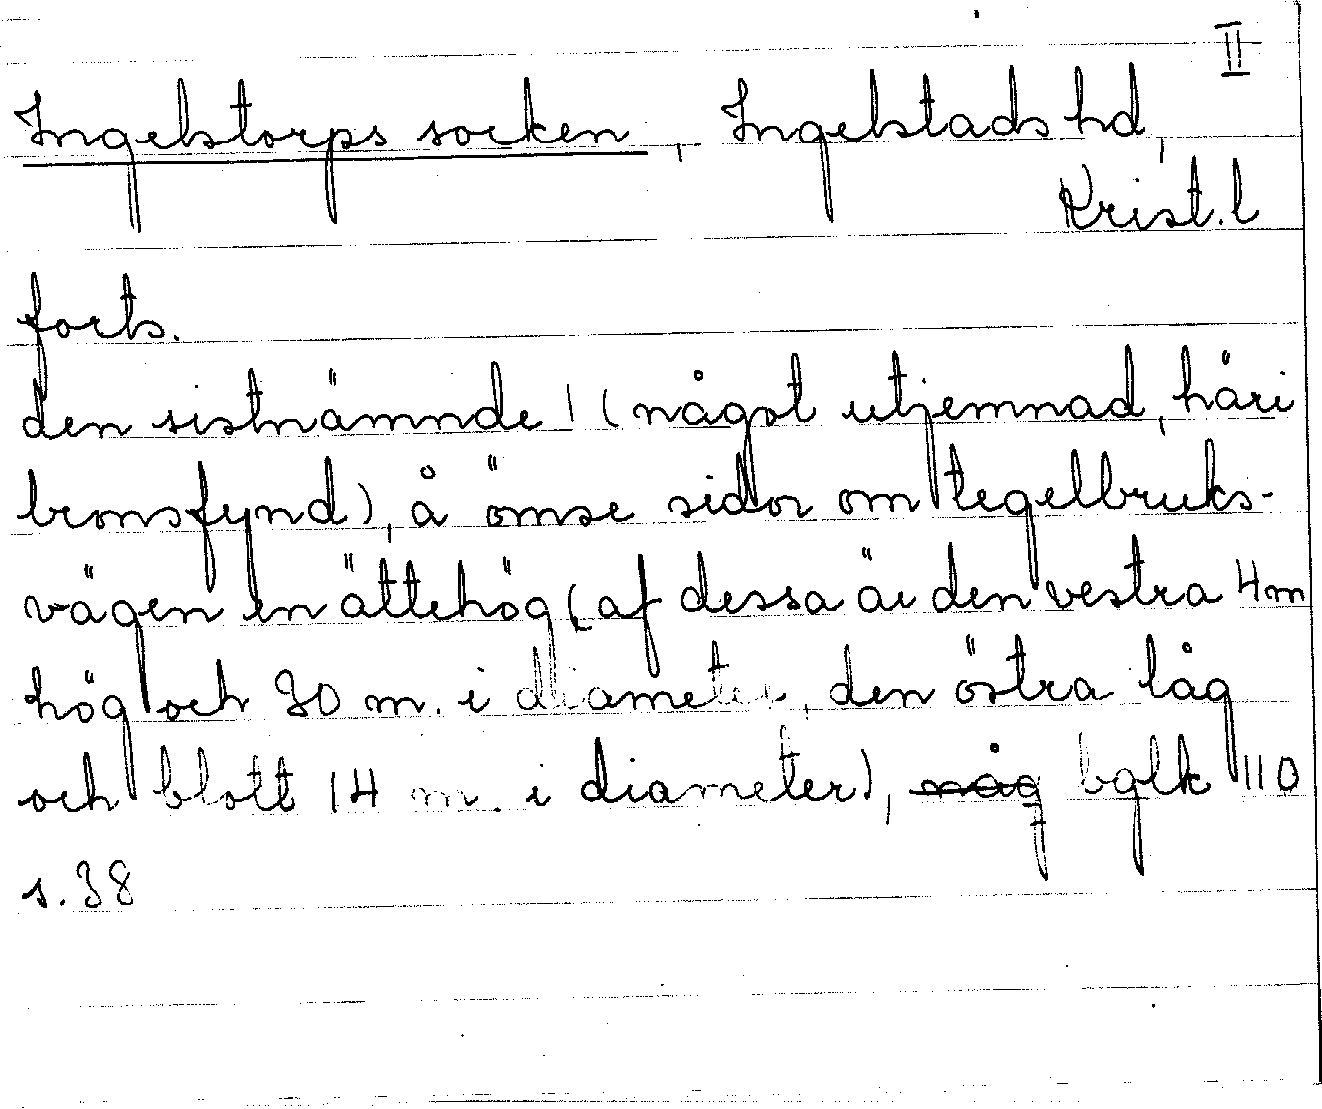 II
Ingelstorps socken, Ingelstads hd,
Krist. l
forts.
den sistnämnde 1 (något utjemnad, häri
bronsfynd), å ömse sidor om tegelbruks-
vägen en ättehög (af dessa är den vestra 4 m
hög och 30 m. i diameter, den östra låg
och blott 14 m. i diameter), någ bglk 110
s. 38